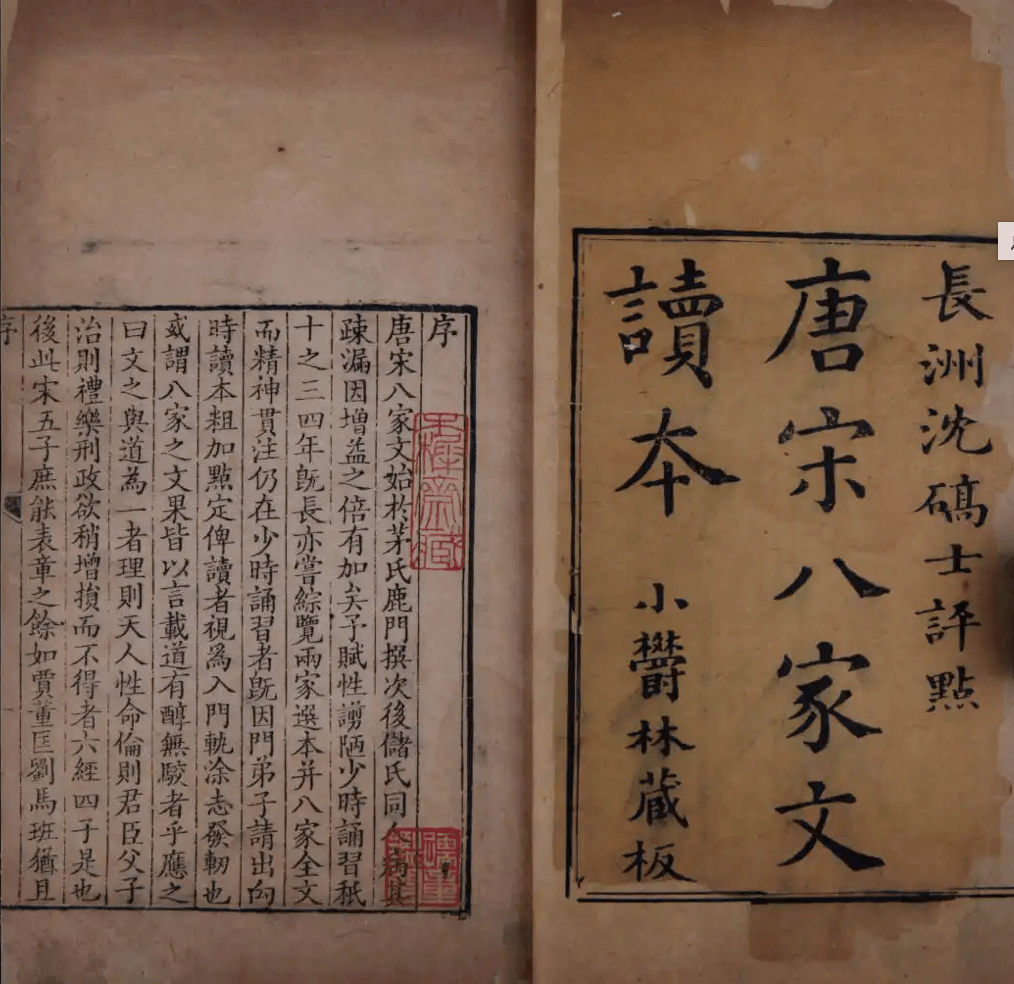 長洲沈碻士評點
唐宋八家文
讀本 小欝林藏板
序
唐宋八家文始於茅氏鹿門撰次後儲氏同人病其
疎漏因增益之倍有加矣予賦性謭陋少時誦習秖
十之三四年旣長亦嘗綜覽兩家選本并八家全文
而精神貫注仍在少時誦習者旣因門弟子請出向
時讀本粗加點定俾讀者視爲入門軌涂志發軔也
或謂八家之文果皆以言載道有醇無駮者乎應之
曰文之與道為一者理則天人性命倫則君臣父子
治則禮樂刑政欲稍增損而不得者六經四子是也
後此宋五子庶能表章之餘如賈董匡劉馬班猶且
序